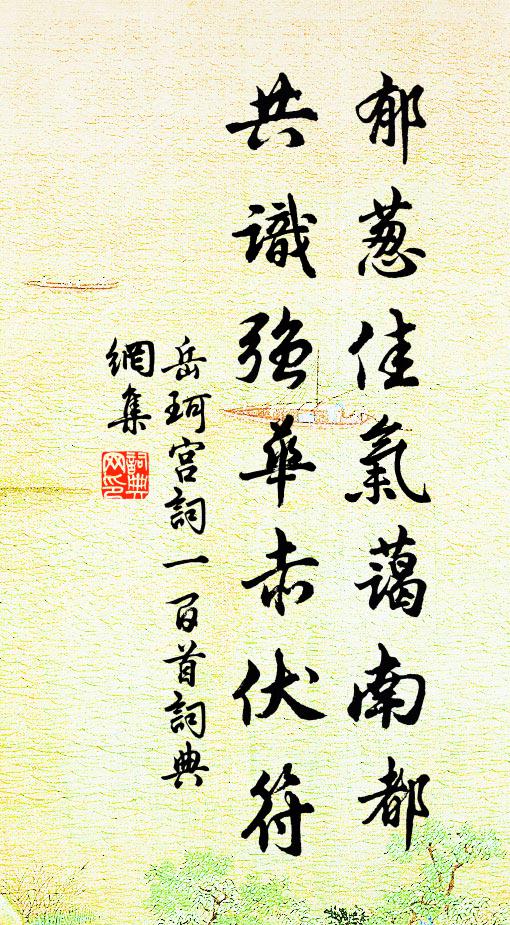 郁葱佳氣藹南都
共識強華赤伏符
岳珂宮詞一百首詞典
網集
詞典
网印